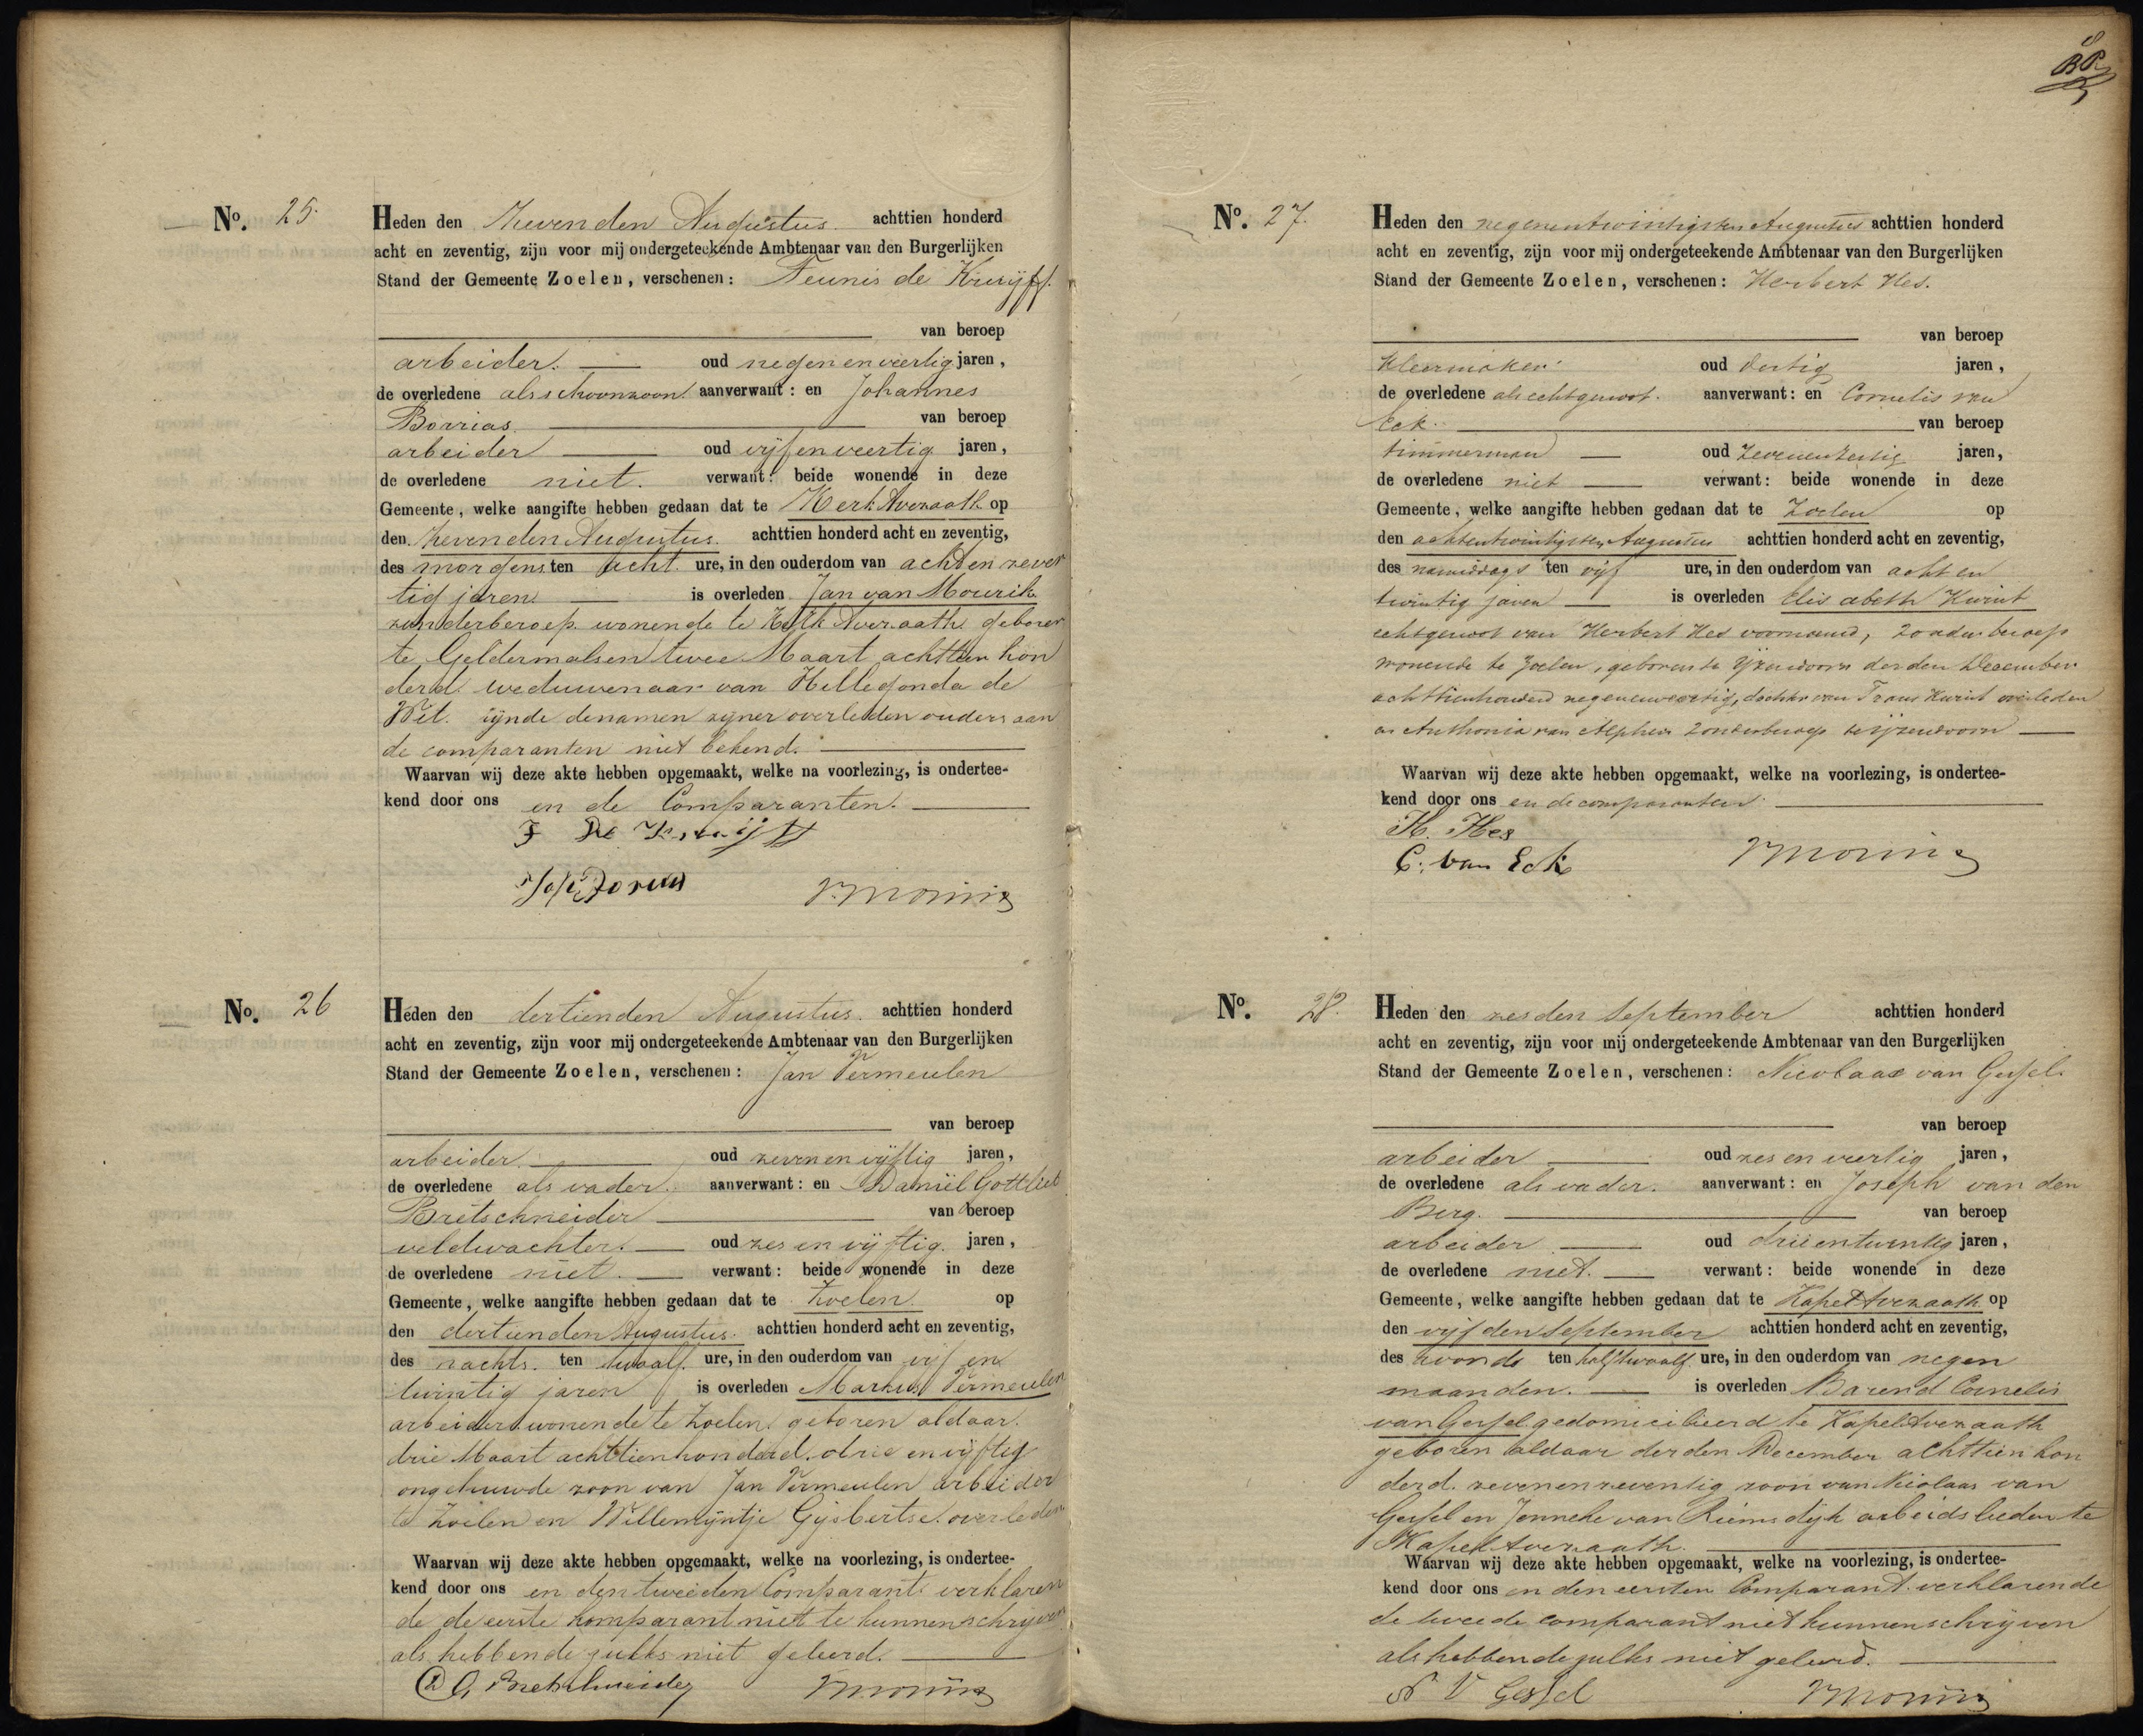 No. 25.
Heden den Zevenden Augustus. achttien honderd
acht en zeventig, zijn voor mij ondergeteekende Ambtenaar van den Burgerlijken
Stand der Gemeente Zoelen, verschenen: Teunis de Kruijff.
van beroep
arbeider. oud negen en veertig jaren,
de overledene als schoonzoon aanverwant: en Johannes
Borrias. van beroep
arbeider oud vijf en veertig jaren,
de overledene niet. verwant: beide wonende in deze
Gemeente, welke aangifte hebben gedaan dat te Kerk Avezaath op
den Zevenden Augustus. achttien honderd acht en zeventig,
des morgens ten acht ure, in den ouderdom van acht en zeven
tig jaren. is overleden Jan van Mourik
zonderberoep. wonende te Kerk Avezaath geboren
te Geldermalsen twee Maart achttien hon
derd. weduwenaar van Hillegonda de
Wit. zijnde de namen zijner overleden ouders aan
de comparanten niet bekend.
Waarvan wij deze akte hebben opgemaakt, welke na voorlezing, is ondertee-
kend door ons en de Comparanten.
de Kruijff
No. 26
Heden den dertienden Augustus. achttien honderd
acht en zeventig, zijn voor mij ondergeteekende Ambtenaar van den Burgerlijken
Stand der Gemeente Zoelen, verschenen: Jan Vermeulen
van beroep
arbeider. oud zeven en vijftig jaren,
de overledene als vader. aanverwant: en Daniël Gottlieb
Bretschneider van beroep
veldwachter. oud zes en vijftig. jaren,
de overledene niet. verwant: beide wonende in deze
Gemeente, welke aangifte hebben gedaan dat te Zoelen op
den dertienden Augustus. achttien honderd acht en zeventig,
des nachts. ten twaalf. ure, in den ouderdom van vijf en
twintig jaren is overleden Markus Vermeulen
arbeider wonende te Zoelen. geboren aldaar.
drie Maart achttienhonderd. drie en vijftig
ongehuwde zoon van Jan Vermeulen arbeider
te Zoelen en Willemijntje Gijsbertse. overleden
Waarvan wij deze akte hebben opgemaakt, welke na voorlezing, is ondertee-
kend door ons en den tweeden Comparant verklaren
de de eerste komparant niet te kunnen schrijven
als hebbende zulks niet geleerd.
D G Bretschneider
No. 27.
Heden den negenentwintigsten Augustus achttien honderd
acht en zeventig, zijn voor mij ondergeteekende Ambtenaar van den Burgerlijken
Stand der Gemeente Zoelen, verschenen: Herbert Hes.
van beroep
kleermaker oud dertig jaren,
de overledene als echtgenoot. aanverwant: en Cornelis van
Eck. van beroep
timmerman oud Zevenendertig jaren,
de overledene niet verwant: beide wonende in deze
Gemeente, welke aangifte hebben gedaan dat te Zoelen op
den achtentwintigsten Augustus achttien honderd acht en zeventig,
des namiddags ten vijf ure, in den ouderdom van acht en
twintig jaren is overleden Elisabeth Kurint
echtgenoot van Herbert Hes voornoemd, zonder beroep
wonende te Zoelen, geboren te IJzendoorn derden December
achttienhonderd negenenveertig, dochter van Frans Kurint overleden
en Anthonia van Alphen zonderberoep te IJzendoorn
Waarvan wij deze akte hebben opgemaakt, welke na voorlezing, is ondertee-
kend door ons en de comparanten
H. Hes
C. van Eck
No. 28.
Heden den zesden September achttien honderd
acht en zeventig, zijn voor mij ondergeteekende Ambtenaar van den Burgerlijken
Stand der Gemeente Zoelen, verschenen: Nicolaas van Gessel.
van beroep
arbeider oud zes en veertig jaren,
de overledene als vader. aanverwant: en Joseph van den
Berg. van beroep
arbeider oud drieentwintig jaren,
de overledene niet. verwant: beide wonende in deze
Gemeente, welke aangifte hebben gedaan dat te Kapel Avezaath op
den vijfden September achttien honderd acht en zeventig,
des avonds ten half twaalf ure, in den ouderdom van negen
maanden. is overleden Barend Cornelis
van Gessel gedomicilieerd te Kapel Avezaath
geboren aldaar derden December achttien hon
derd. zevenenzeventig zoon van Nicolaas van
Gessel en Jenneke van Riemsdijk arbeidslieden te
Kapel Avezaath.
Waarvan wij deze akte hebben opgemaakt, welke na voorlezing, is ondertee-
kend door ons en den eersten Comparant. verklarende
de tweede comparant niet kunnen schrijven
als hebbende zulks niet geleerd.
N V Gessel